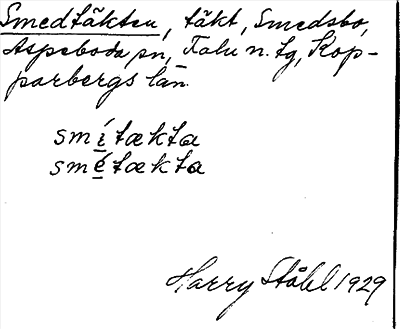 Smedtäkten, täkt, Smedsbo,
Aspeboda sn, Falu n. tg, Kop-
parbergs län.
smítækta
smétækta
Harry Ståhl 1929